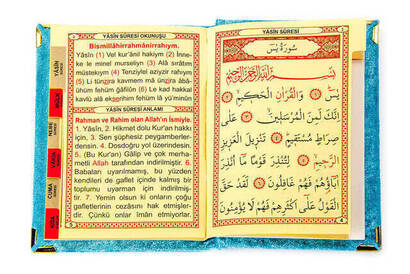 YÂSİN SÛRESİ OKUNUŞU
Bismillâhirrahmânirrahıym.
Yâsîn (1) Vel kur'ânil hakiym (2) İnne-
ke le minel murseliyn (3) Alâ sırâtım
müstekıym (4) Tenziylel aziyzir rahıym
(5) Li tünzira kavmem mâ ünzira âbâ-
ühüm fehüm ğâfilûn (6) Le kad hakkal
kavlü alâ ekserihim fehüm lâ yü'minûn
YÂSİN SÛRESİ ANLAMI
Rahman ve Rahim olan Allah'ın İsmiyle.
1. Yâsîn, 2. Hikmet dolu Kur'an hakkı
için, 3. Sen şüphesiz peygamberler-
densin. 4. Dosdoğru yol üzerindesin.
5. (Bu Kur'an) Gâlip ve çok merha-
metli Allah tarafından indirilmiştir. 6.
Babaları uyarılmamış, bu yüzden
kendileri de gaflet içinde kalmış bir
toplumu uyarman için indirilmiş-
tir. 7. Yemin olsun ki onların çoğu
gafletlerinin cezasını hak etmişler-
dir. Çünkü onlar iman etmiyorlar.
YÂSİN
MÜLK
NEBE
CUMA
KISA
YÂSİN SÛRESİ
سُورَةُ يٰسٓ
بِسْمِ اللّٰهِ الرَّحْمٰنِ الرَّحِيمِ
يٰسٓ ١ وَالْقُرْاٰنِ الْحَكِيمِ ٢
اِنَّكَ لَمِنَ الْمُرْسَلِينَ ٣ عَلٰى
صِرَاطٍ مُسْتَقِيمٍ ٤ تَنْزِيلَ الْعَزِيزِ
الرَّحِيمِ ٥ لِتُنْذِرَ قَوْمًا مَٓا اُنْذِرَ
اٰبَٓاؤُهُمْ فَهُمْ غَافِلُونَ ٦ لَقَدْ حَقَّ
الْقَوْلُ عَلٰٓى اَكْثَرِهِمْ فَهُمْ لَا يُؤْمِنُونَ